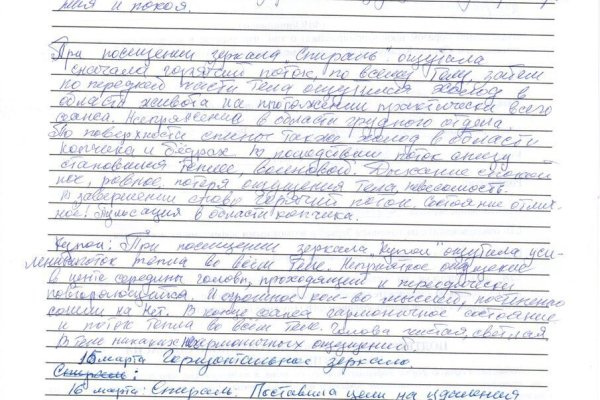 ния и покоя.
При посещении зеркала "Спираль" ощутила
сначала горячий поток, по всему телу, затем
по передней части тела ощущался холод в
области живота на протяжении практически всего
сеанса. Напряжение в области грудного отдела.
По поверхности спины также холод в области
копчика и бёдрах. В последствии поток снизу
становился теплее, волновой. Дыхание спокой
ное, ровное, потеря ощущения тела, невесомость.
В завершении снова горячий поток. Состояние отлич-
ное. Пульсация в области копчика.
Купол: При посещении зеркала "Купол" ощутила уси-
ление поток тепла во всём теле. Неприятное ощущение
в центе середины головы, проходящий и переодически
повторяющийся. И огромное кол-во мыслей, постепенно
сошли на нет. В конце сеанса гармоничное состояние
и поток тепла во всём теле. Голова чистая, светлая,
в теле никаких не гармоничных ощущений.
15 марта Горизонтальное зеркало.
Спираль:
16 марта: Спираль. Поставила цели на удаления